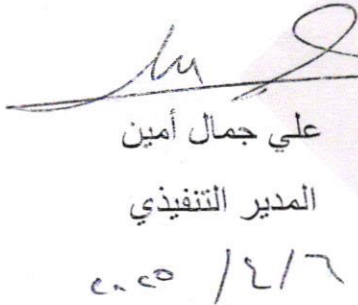 علي جمال أمين
المدير التنفيذي
٢٠٢٥ /٤/٦